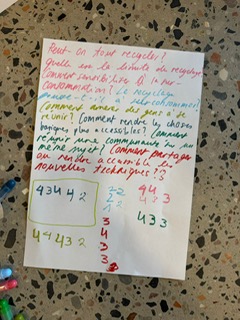 Peut-on tout recycler?
Quelle est la limite du recyclage
Comment sensibiliser à la sur-
consommation? Le recyclage
pousse-t-il à surconsommer?
Comment amener des gens à se
réunir? Comment rendre les choses
plus accessibles? Comment
réunir une communauté sur un
même sujet? Comment partager
ou rendre accessible les
nouvelles techniques?
43442
44432
3
4
3
3
433